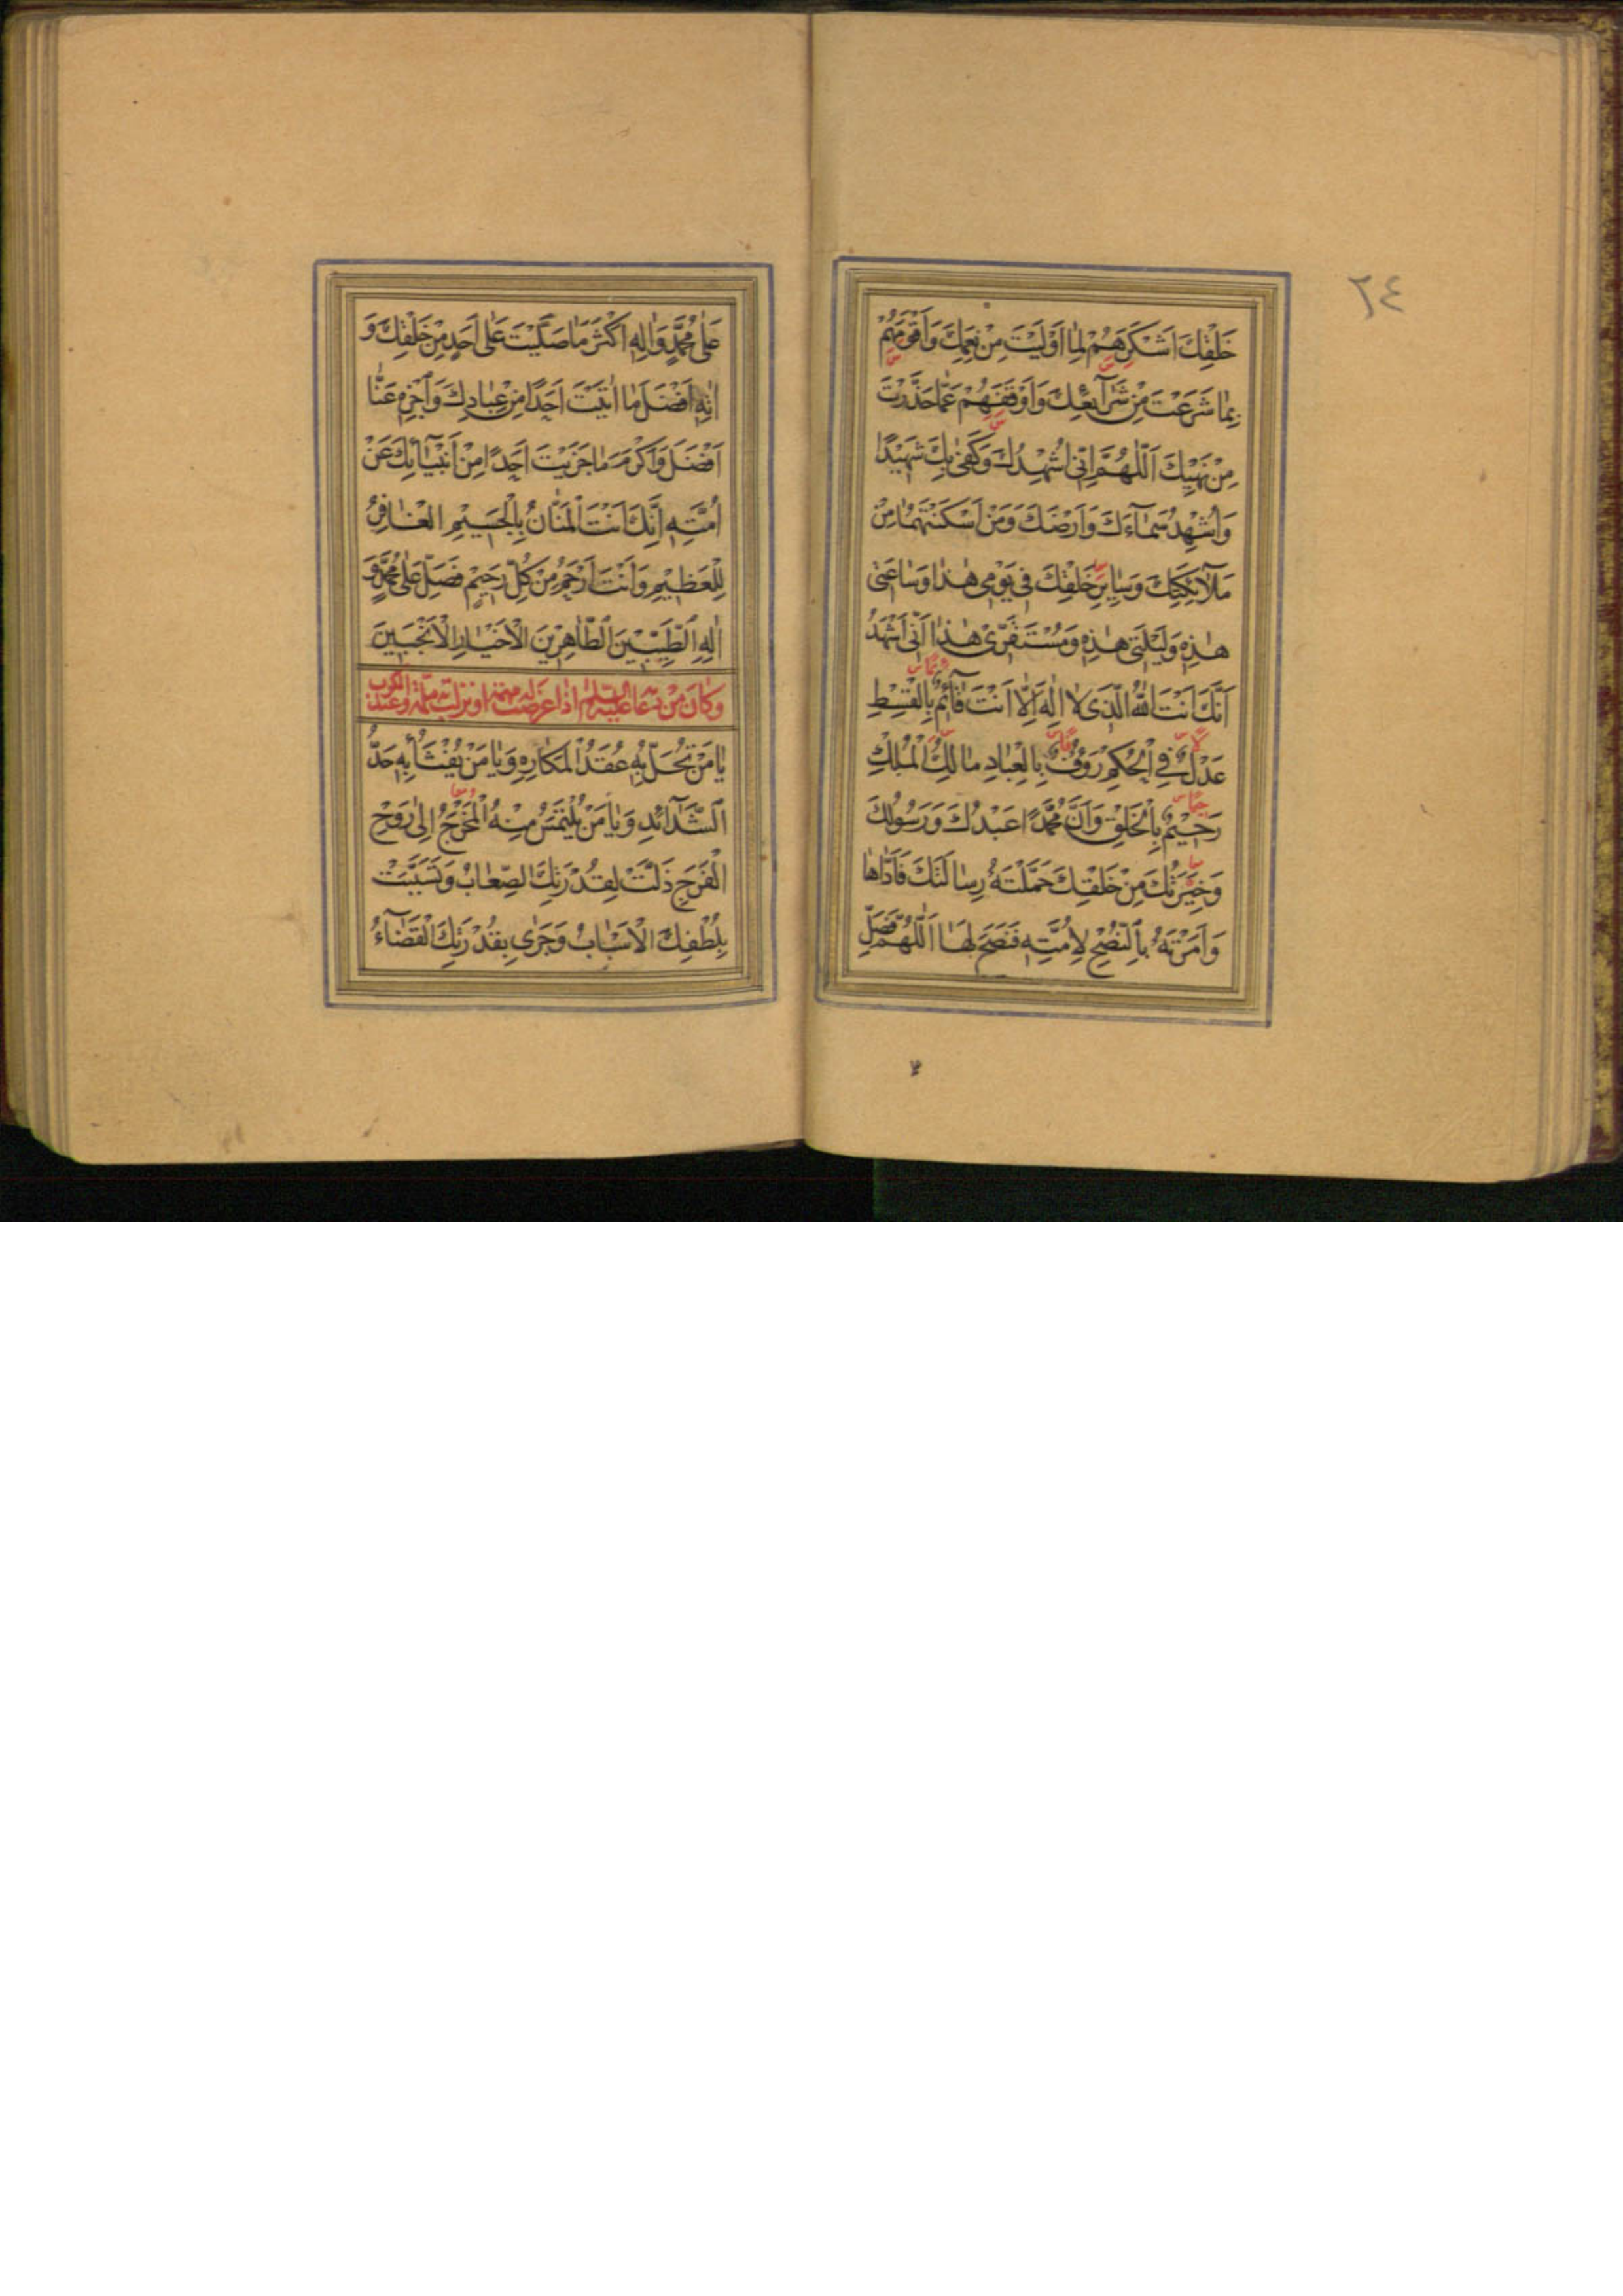 ٢٤
خَلْقِكَ اَشْكَرَهُمْ لِمٰا اَوْلَيْتَ مِنْ نِعَمِكَ وَاَقْوَمَهُمْ
بِمٰا شَرَعْتَ مِنْ شَرٰآيِعِكَ وَاَوْقَفَهُمْ عَمّٰا حَذَّرْتَ
مِنْ نَهْيِكَ اَللّٰهُمَّ اِنّى اُشْهِدُكَ وَكَفٰى بِكَ شَهِيْدًا
وَاُشْهِدُ سَمٰآءَكَ وَاَرْضَكَ وَمَنْ اَسْكَنْتَهُمٰا مِنْ
مَلٰآئِكَتِكَ وَسٰايِرِ خَلْقِكَ فى يَوْمى هٰذٰا وَسٰاعَتى
هٰذِهِ وَلَيْلَتى هٰذِهِ وَمُسْتَقَرّى هٰذٰا اَنّى اَشْهَدُ
اَنَّكَ اَنْتَ اللّٰهُ الَّذى لٰا اِلٰهَ اِلّٰا اَنْتَ قٰآئِمٌ بِالْقِسْطِ
عَدْلٌ فِى الْحُكْمِ رَؤُفٌ بِالْعِبٰادِ مٰالِكُ الْمُلْكِ
رَحيْمٌ بِالْخَلْقِ وَاَنَّ مُحَمَّدًا عَبْدُكَ وَرَسُولُكَ
وَخِيَرَتُكَ مِنْ خَلْقِكَ حَمَّلْتَهُ رِسٰالَتَكَ فَاَدّٰاهٰا
وَاَمَرْتَهُ بِالنُّصْحِ لِاُمَّتِهِ فَنَصَحَ لَهٰا اَللّٰهُمَّ فَصَلِّ
عَلٰى مُحَمَّدٍ وَاٰلِهِ اَكْثَرَ مٰا صَلَّيْتَ عَلٰى اَحَدٍ مِنْ خَلْقِكَ وَ
اٰتِهِ اَفْضَلَ مٰا اٰتَيْتَ اَحَدًا مِنْ عِبٰادِكَ وَاَجْزِهِ عَنّٰا
اَفْضَلَ وَاَكْرَمَ مٰا جَزَيْتَ اَحَدًا مِنْ اَنْبِيٰآئِكَ عَنْ
اُمَّتِهِ اِنَّكَ اَنْتَ الْمَنّٰانُ بِالْجَسيْمِ الْغٰافِرُ
لِلْعَظيْمِ وَاَنْتَ اَرْحَمُ مِنْ كُلِّ رَحيْمٍ فَصَلِّ عَلٰى مُحَمَّدٍ وَ
اٰلِهِ الطَّيِّبيْنَ الطّٰاهِريْنَ الْاَخْيٰارِ الْاَنْجَبيْنَ
وكان من دعائه عليه السلام اذا عرضت له مهمة او نزلت به ملمة وعند الكرب
يٰا مَنْ تُحَلُّ بِهِ عُقَدُ الْمَكٰارِهِ وَيٰا مَنْ يُفْثَأُ بِهِ حَدُّ
الشَّدٰآئِدِ وَيٰا مَنْ يُلْتَمَسُ مِنْهُ الْمَخْرَجُ اِلٰى رَوْحِ
الْفَرَجِ ذَلَّتْ لِقُدْرَتِكَ الصِّعٰابُ وَتَسَبَّبَتْ
بِلُطْفِكَ الْاَسْبٰابُ وَجَرٰى بِقُدْرَتِكَ الْقَضٰآءُ